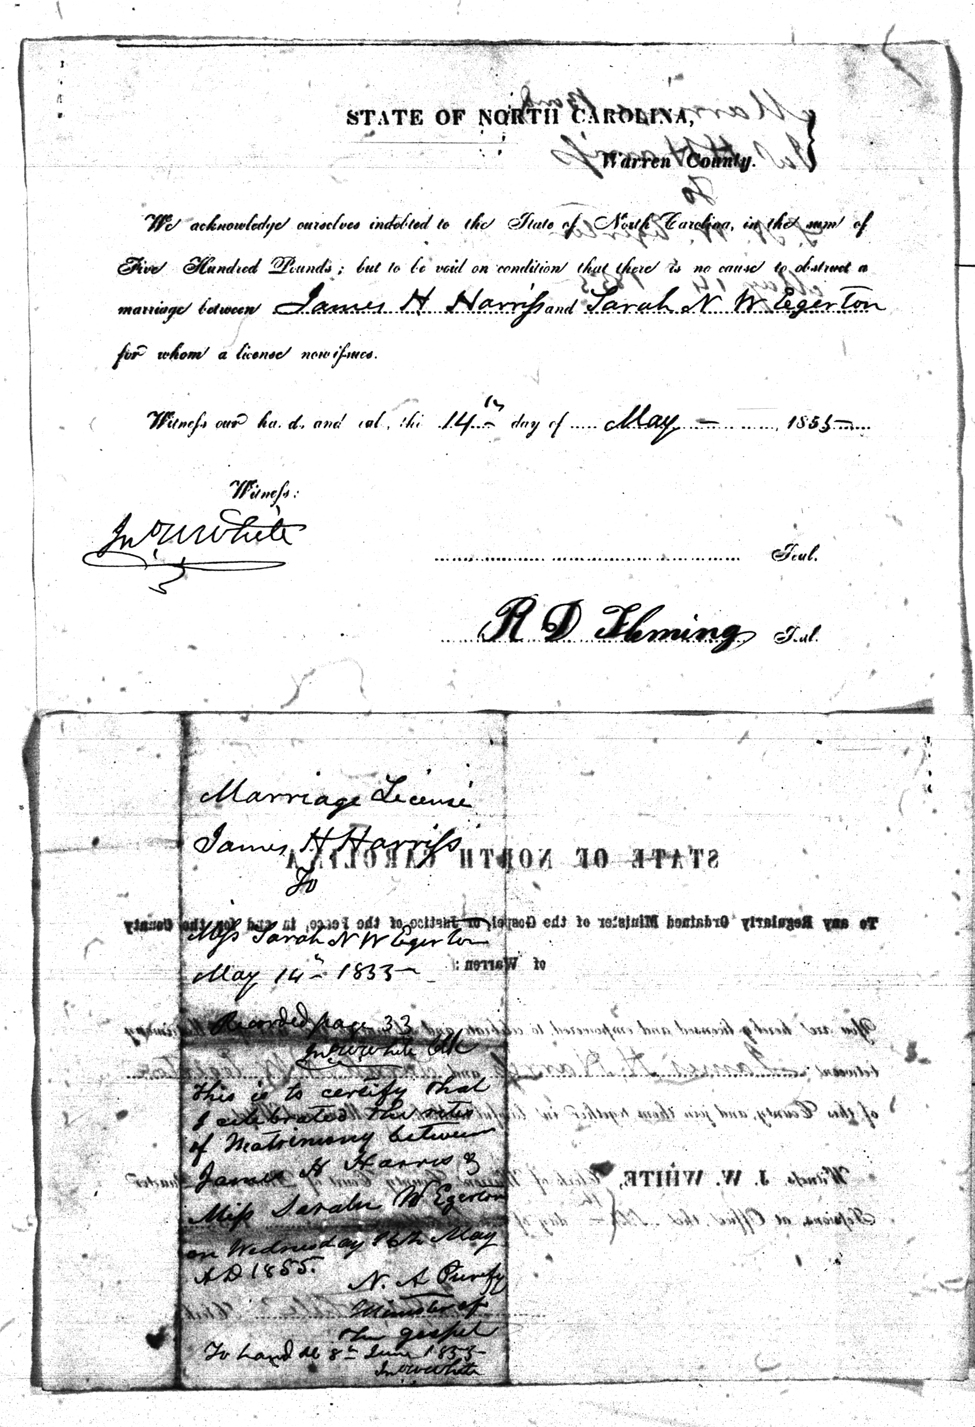 STATE OF NORTH CAROLINA,
Warren County.
We acknowledge ourselves indebted to the State of North Carolina, in the sum of
Five Hundred Pounds; but to be void on condition that there is no cause to obstruct a
marriage between James H Harriss and Sarah N W Egerton
for whom a license now issues.
Witness our ha.ds and eal, the 14th day of May 1855
Witness:
Jno W White
Seal.
R D Fleming Seal
Marriage License
James H Harriss
To
Miss Sarah N W Egerton
May 14th 1855
Recorded page 33
Jno W White Clk
This is to certify that
I celebrated the rites
of Matrimony between
James H Harris &
Miss Sarah W Egerton
on Wednesday 16th May
AD 1855.
N. A Purefy
Minister of
the gospel
To hand 8th June 1855
Jno W White
STATE OF NORTH CAROLINA
To any Regularly Ordained Minister of the Gospel, or Justice of the Peace, in and for the County
of Warren:
You are hereby licensed and empowered to celebrate
between James H. Harriss and Egerton
of this County, and join them together in
Witness J. W. WHITE, Clerk of
Sessions, at Office, this day of